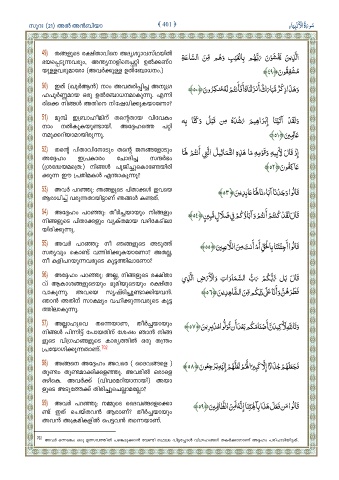 സൂറ: (21) അൽ അൻബിയാ
﴾ 401 ﴿
سورة الأنبياء
49) തങ്ങളുടെ രക്ഷിതാവിനെ അദൃശ്യാവസ്ഥയിൽ
ഭയപ്പെടുന്നവരും, അന്ത്യനാളിനെപ്പറ്റി ഉൽക്കണ്ഠ
യുള്ളവരുമായ (അവർക്കുള്ള ഉൽബോധനം.)
الَّذِينَ يَخْشَوْنَ رَبَّهُم بِالْغَيْبِ وَهُم مِّنَ السَّاعَةِ
مُشْفِقُونَ ﴿٤٩﴾
50) ഇത് (ഖുർആൻ) നാം അവതരിപ്പിച്ച അനുഗ്ര
ഹപൂർണ്ണമായ ഒരു ഉൽബോധനമാകുന്നു. എന്നി
രിക്കെ നിങ്ങൾ അതിനെ നിഷേധിക്കുകയാണോ?
وَهَٰذَا ذِكْرٌ مُّبَارَكٌ أَنزَلْنَاهُ أَفَأَنتُمْ لَهُ مُنكِرُونَ ﴿٥٠﴾
51) മുമ്പ് ഇബ്രാഹീമിന് തന്റേതായ വിവേകം
നാം നൽകുകയുണ്ടായി. അദ്ദേഹത്തെ പറ്റി
നമുക്കറിയാമായിരുന്നു.
وَلَقَدْ آتَيْنَا إِبْرَاهِيمَ رُشْدَهُ مِن قَبْلُ وَكُنَّا بِهِ
عَالِمِينَ ﴿٥١﴾
52) തന്റെ പിതാവിനോടും തന്റെ ജനങ്ങളോടും
അദ്ദേഹം ഇപ്രകാരം ചോദിച്ച സന്ദർഭം
(ശ്രദ്ധേയമത്രെ:) നിങ്ങൾ പൂജിച്ചുകൊണ്ടേയിരി
ക്കുന്ന ഈ പ്രതിമകൾ എന്താകുന്നു?
إِذْ قَالَ لِأَبِيهِ وَقَوْمِهِ مَا هَٰذِهِ التَّمَاثِيلُ الَّتِي أَنتُمْ لَهَا
عَاكِفُونَ ﴿٥٢﴾
53) അവർ പറഞ്ഞു: തങ്ങളുടെ പിതാക്കൾ ഇവയെ
ആരാധിച്ച് വരുന്നതായിട്ടാണ് ഞങ്ങൾ കണ്ടത്.
قَالُوا وَجَدْنَا آبَاءَنَا لَهَا عَابِدِينَ ﴿٥٣﴾
54) അദ്ദേഹം പറഞ്ഞു: തീർച്ചയായും നിങ്ങളും
നിങ്ങളുടെ പിതാക്കളും വ്യക്തമായ വഴികേടിലാ
യിരിക്കുന്നു.
قَالَ لَقَدْ كُنتُمْ أَنتُمْ وَآبَاؤُكُمْ فِي ضَلَالٍ مُّبِينٍ ﴿٥٤﴾
55) അവർ പറഞ്ഞു: നീ ഞങ്ങളുടെ അടുത്ത്
സത്യവും കൊണ്ട് വന്നിരിക്കുകയാണോ? അതല്ല,
നീ കളിപറയുന്നവരുടെ കൂട്ടത്തിലാണോ?
قَالُوا أَجِئْتَنَا بِالْحَقِّ أَمْ أَنتَ مِنَ اللَّاعِبِينَ ﴿٥٥﴾
56) അദ്ദേഹം പറഞ്ഞു: അല്ല, നിങ്ങളുടെ രക്ഷിതാ
വ് ആകാശങ്ങളുടെയും ഭൂമിയുടെയും രക്ഷിതാ
വാകുന്നു. അവയെ സൃഷ്ടിച്ചുണ്ടാക്കിയവൻ.
ഞാൻ അതിന് സാക്ഷ്യം വഹിക്കുന്നവരുടെ കൂട്ട
ത്തിലാകുന്നു.
قَالَ بَل رَّبُّكُمْ رَبُّ السَّمَاوَاتِ وَالْأَرْضِ الَّذِي
فَطَرَهُنَّ وَأَنَا عَلَىٰ ذَٰلِكُم مِّنَ الشَّاهِدِينَ ﴿٥٦﴾
57) അല്ലാഹുവെ തന്നെയാണ, തീർച്ചയായും
നിങ്ങൾ പിന്നിട്ട് പോയതിന് ശേഷം ഞാൻ നിങ്ങ
ളുടെ വിഗ്രഹങ്ങളുടെ കാര്യത്തിൽ ഒരു തന്ത്രം
പ്രയോഗിക്കുന്നതാണ്.
وَتَاللَّهِ لَأَكِيدَنَّ أَصْنَامَكُم بَعْدَ أَن تُوَلُّوا مُدْبِرِينَ ﴿٥٧﴾
58) അങ്ങനെ അദ്ദേഹം അവരെ ( ദൈവങ്ങളെ )
തുണ്ടം തുണ്ടമാക്കിക്കളഞ്ഞു. അവരിൽ ഒരാളെ
ഒഴികെ. അവർക്ക് (വിവരമറിയാനായി) അയാ
ളുടെ അടുത്തേക്ക് തിരിച്ചുചെല്ലാമല്ലോ?
فَجَعَلَهُمْ جُذَاذًا إِلَّا كَبِيرًا لَّهُمْ لَعَلَّهُمْ إِلَيْهِ يَرْجِعُونَ ﴿٥٨﴾
59) അവർ പറഞ്ഞു: നമ്മുടെ ദൈവങ്ങളെക്കൊ
ണ്ട് ഇത് ചെയ്തവൻ ആരാണ്? തീർച്ചയായും
അവൻ അക്രമികളിൽ പെട്ടവൻ തന്നെയാണ്.
قَالُوا مَن فَعَلَ هَٰذَا بِآلِهَتِنَا إِنَّهُ لَمِنَ الظَّالِمِينَ ﴿٥٩﴾